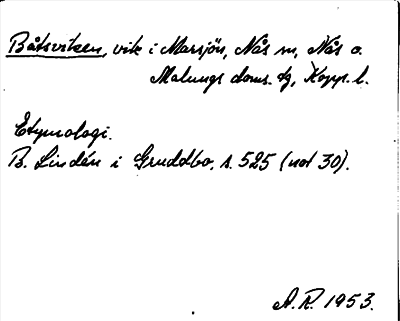 Båtsviken, vik i Marsjön, Nås sn, Nås o.
Malungs doms. tg, Kopp. l.
Etymologi.
B. Lindén i Gruddbo, s. 525 (not 30).
A. R. 1953.